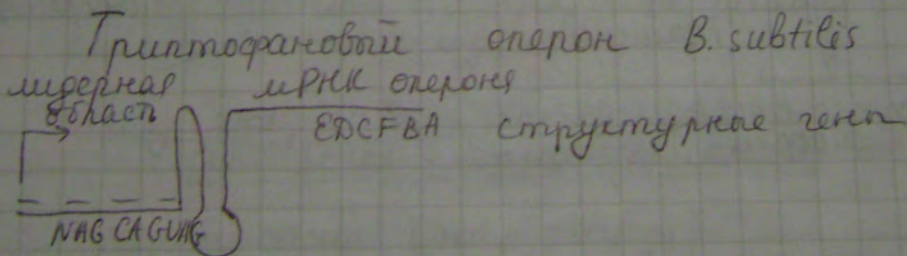 Триптофановый оперон B. subtilis
лидерная мРНК оперона
область
EDCFBA структурные гены
NAG CAGUAG